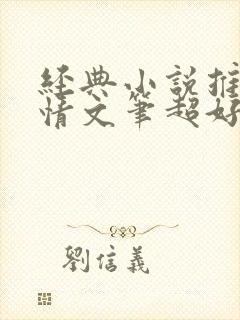 經典小說推
情文筆超好
劉信義